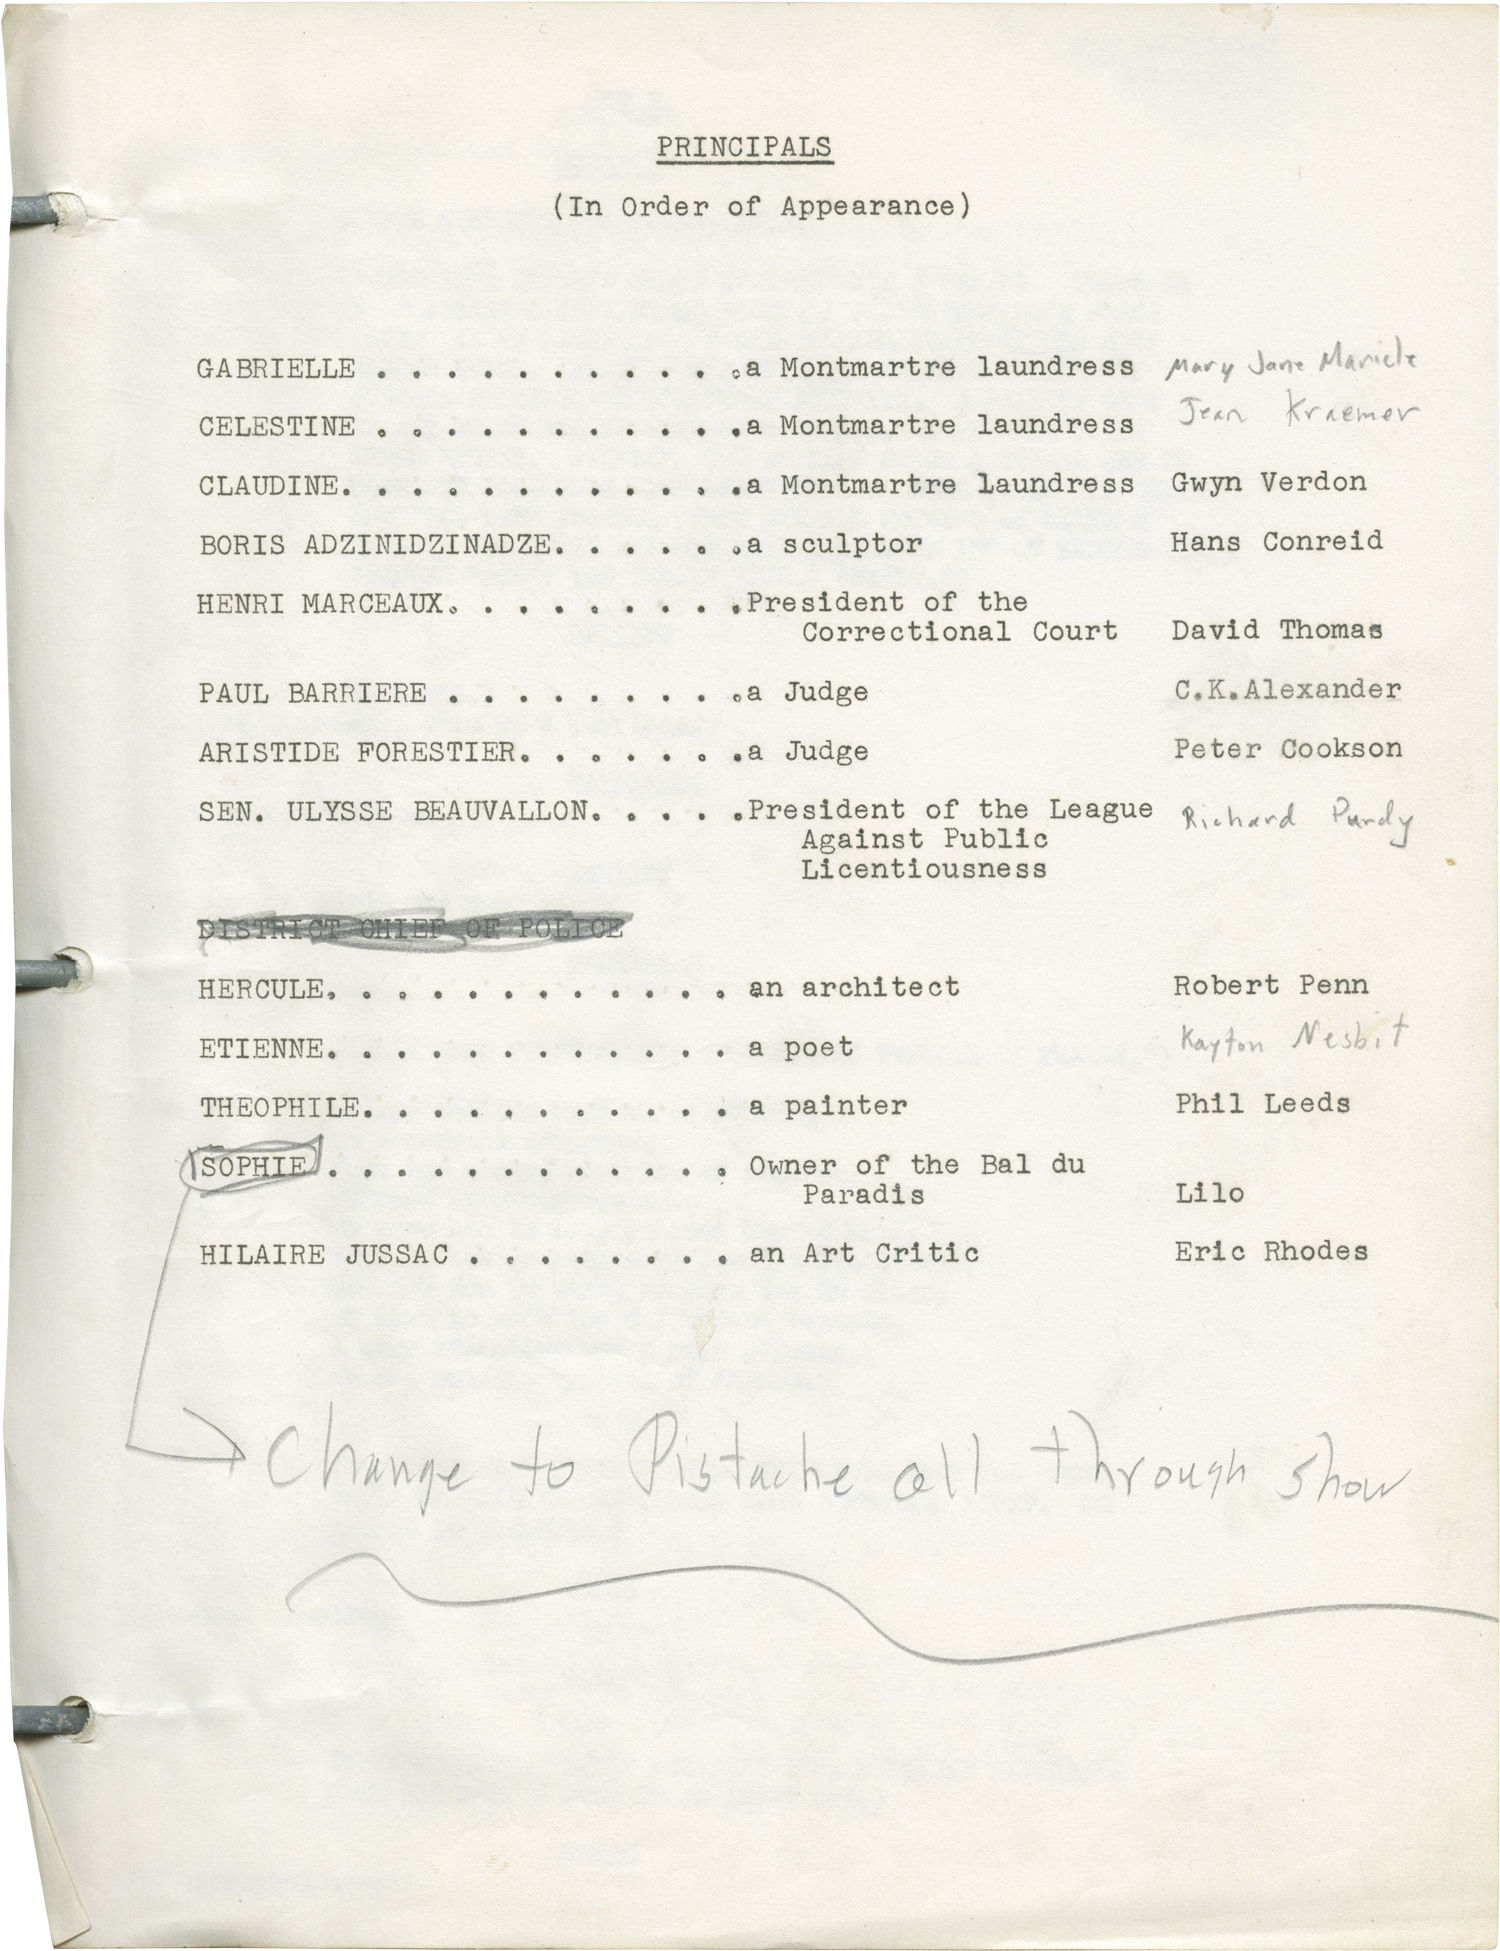 PRINCIPALS
(In Order of Appearance)
GABRIELLE . . . . . . . . . . . .a Montmartre laundress Mary Jane
CELESTINE . . . . . . . . . . . .a Montmartre laundress Jean Kraemer
CLAUDINE. . . . . . . . . . . . .a Montmartre laundress Gwyn Verdon
BORIS ADZINIDZINADZE. . . . . . .a sculptor Hans Conreid
HENRI MARCEAUX. . . . . . . . . .President of the
Correctional Court David Thomas
PAUL BARRIERE . . . . . . . . . .a Judge C.K.Alexander
ARISTIDE FORESTIER. . . . . . . .a Judge Peter Cookson
SEN. ULYSSE BEAUVALLON. . . . . .President of the League Richard Purdy
Against Public
Licentiousness
DISTRICT CHIEF OF POLICE
HERCULE. . . . . . . . . . . . . an architect Robert Penn
ETIENNE. . . . . . . . . . . . . a poet Kayton Nesbit
THEOPHILE. . . . . . . . . . . . a painter Phil Leeds
SOPHIE . . . . . . . . . . . . . Owner of the Bal du
Paradis Lilo
HILAIRE JUSSAC . . . . . . . . . an Art Critic Eric Rhodes
Change to Pistache all through show